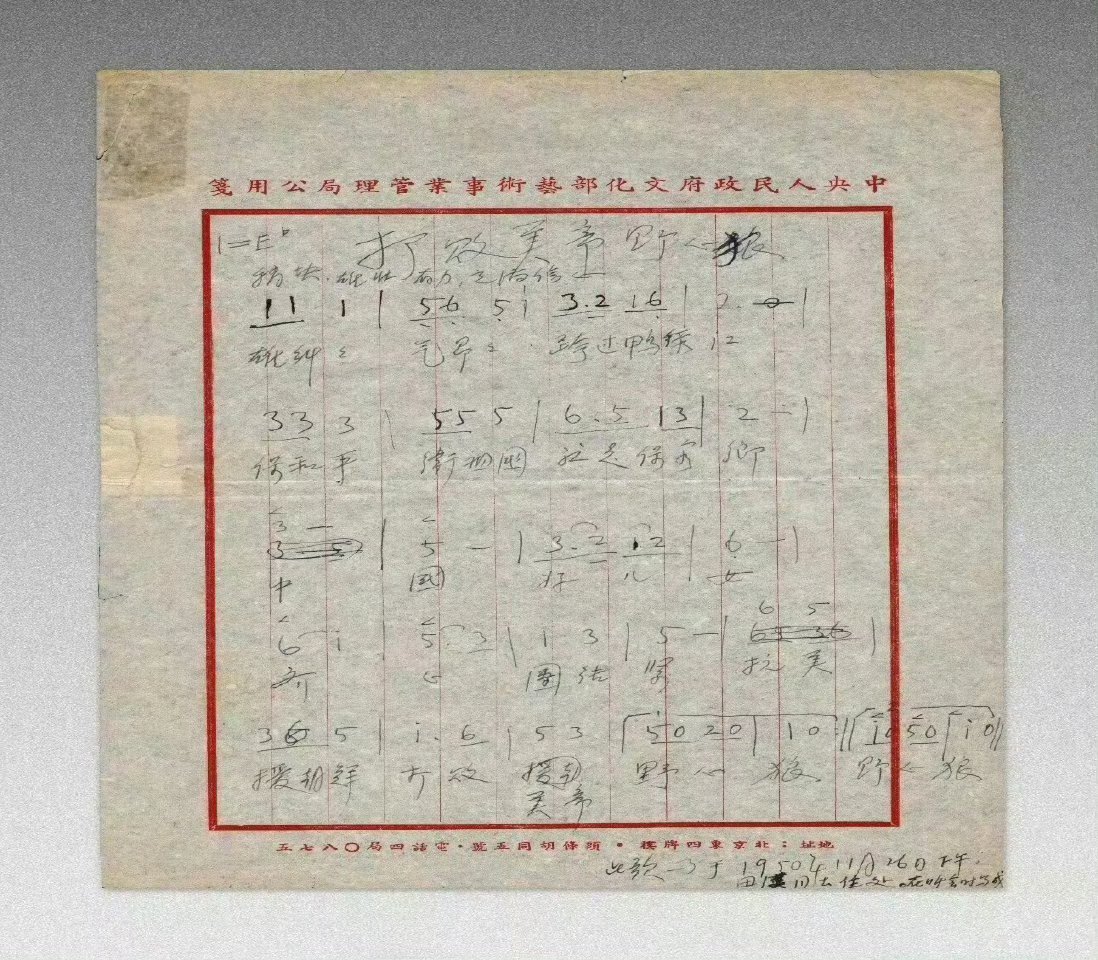 中央人民政府文化部藝術事業管理局公用箋
打敗美帝野心狼
1=E♭
雄壯
11 1 | 56 5i | 3.2 16 | 2. |
雄糾〻 气昂〻 跨过鸭绿江
33 3 | 55 5 | 6.5 13 | 2 — |
保和平 衛祖國 就是保家鄉
3 —
| 5 — | 3.2 12 | 6 — |
中 國 好 儿 女
6 5
6 i | 5.3 | i 3 | 5 — | |
齐 心 團结 紧 抗 美
36 5 | i. 6 | 53 | 50 20 | 10 :|| i0 50 | i0 ||
援朝鮮 打敗 美帝 野心 狼 野心 狼
地址：北京東四牌樓・頭條胡同五號・電話四局〇八七五
此歌写于1950年11月26日下午.
田漢同志住处.在听会时写成